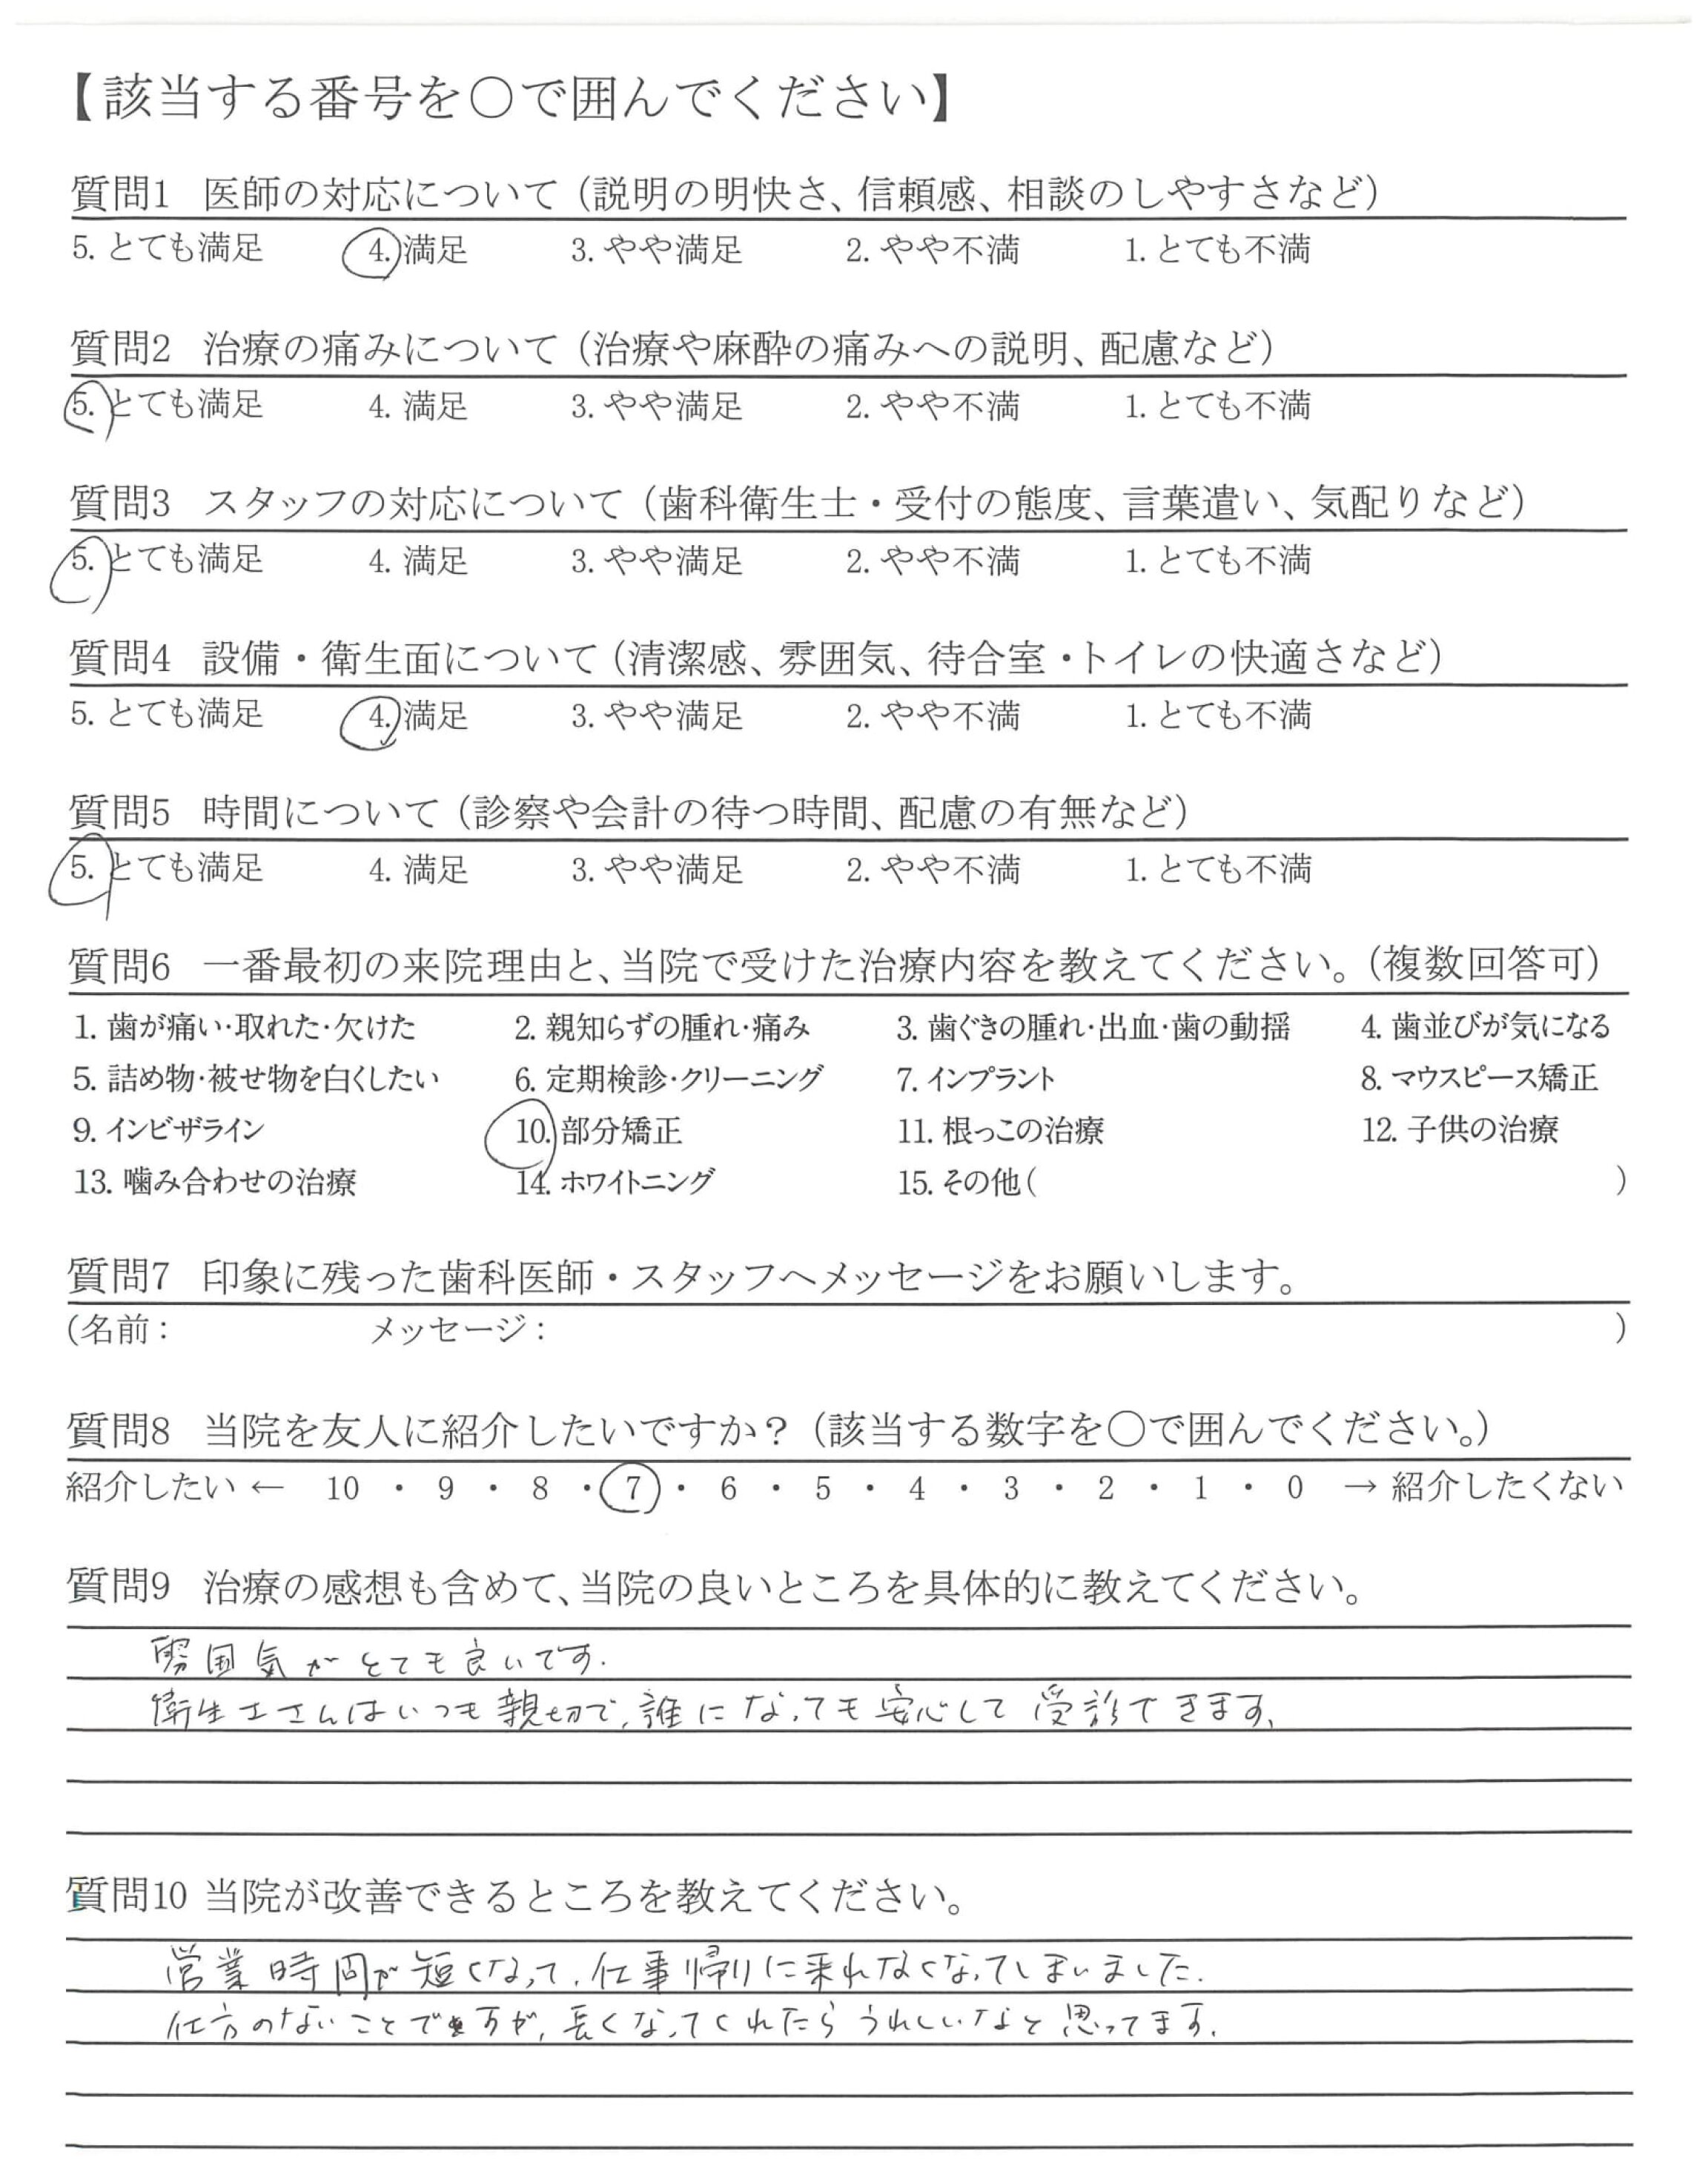 【該当する番号を○で囲んでください】
質問1 医師の対応について（説明の明快さ、信頼感、相談のしやすさなど）
5. とても満足 4. 満足 3. やや満足 2. やや不満 1. とても不満
質問2 治療の痛みについて（治療や麻酔の痛みへの説明、配慮など）
5. とても満足 4. 満足 3. やや満足 2. やや不満 1. とても不満
質問3 スタッフの対応について（歯科衛生士・受付の態度、言葉遣い、気配りなど）
5. とても満足 4. 満足 3. やや満足 2. やや不満 1. とても不満
質問4 設備・衛生面について（清潔感、雰囲気、待合室・トイレの快適さなど）
5. とても満足 4. 満足 3. やや満足 2. やや不満 1. とても不満
質問5 時間について（診察や会計の待つ時間、配慮の有無など）
5. とても満足 4. 満足 3. やや満足 2. やや不満 1. とても不満
質問6 一番最初の来院理由と、当院で受けた治療内容を教えてください。（複数回答可）
1. 歯が痛い・取れた・欠けた 2. 親知らずの腫れ・痛み 3. 歯ぐきの腫れ・出血・歯の動揺 4. 歯並びが気になる
5. 詰め物・被せ物を白くしたい 6. 定期検診・クリーニング 7. インプラント 8. マウスピース矯正
9. インビザライン 10. 部分矯正 11. 根っこの治療 12. 子供の治療
13. 噛み合わせの治療 14. ホワイトニング 15. その他（ ）
質問7 印象に残った歯科医師・スタッフへメッセージをお願いします。
（名前： メッセージ： ）
質問8 当院を友人に紹介したいですか？（該当する数字を○で囲んでください。）
紹介したい ← 10 ・ 9 ・ 8 ・ 7 ・ 6 ・ 5 ・ 4 ・ 3 ・ 2 ・ 1 ・ 0 → 紹介したくない
質問9 治療の感想も含めて、当院の良いところを具体的に教えてください。
雰囲気がとても良いです.
衛生士さんはいつも親切で、誰になっても安心して受診できます、
質問10 当院が改善できるところを教えてください。
営業時間が短くなって、仕事帰りに来れなくなってしまいました.
仕方のないことですが、長くなってくれたらうれしいなと思ってます.